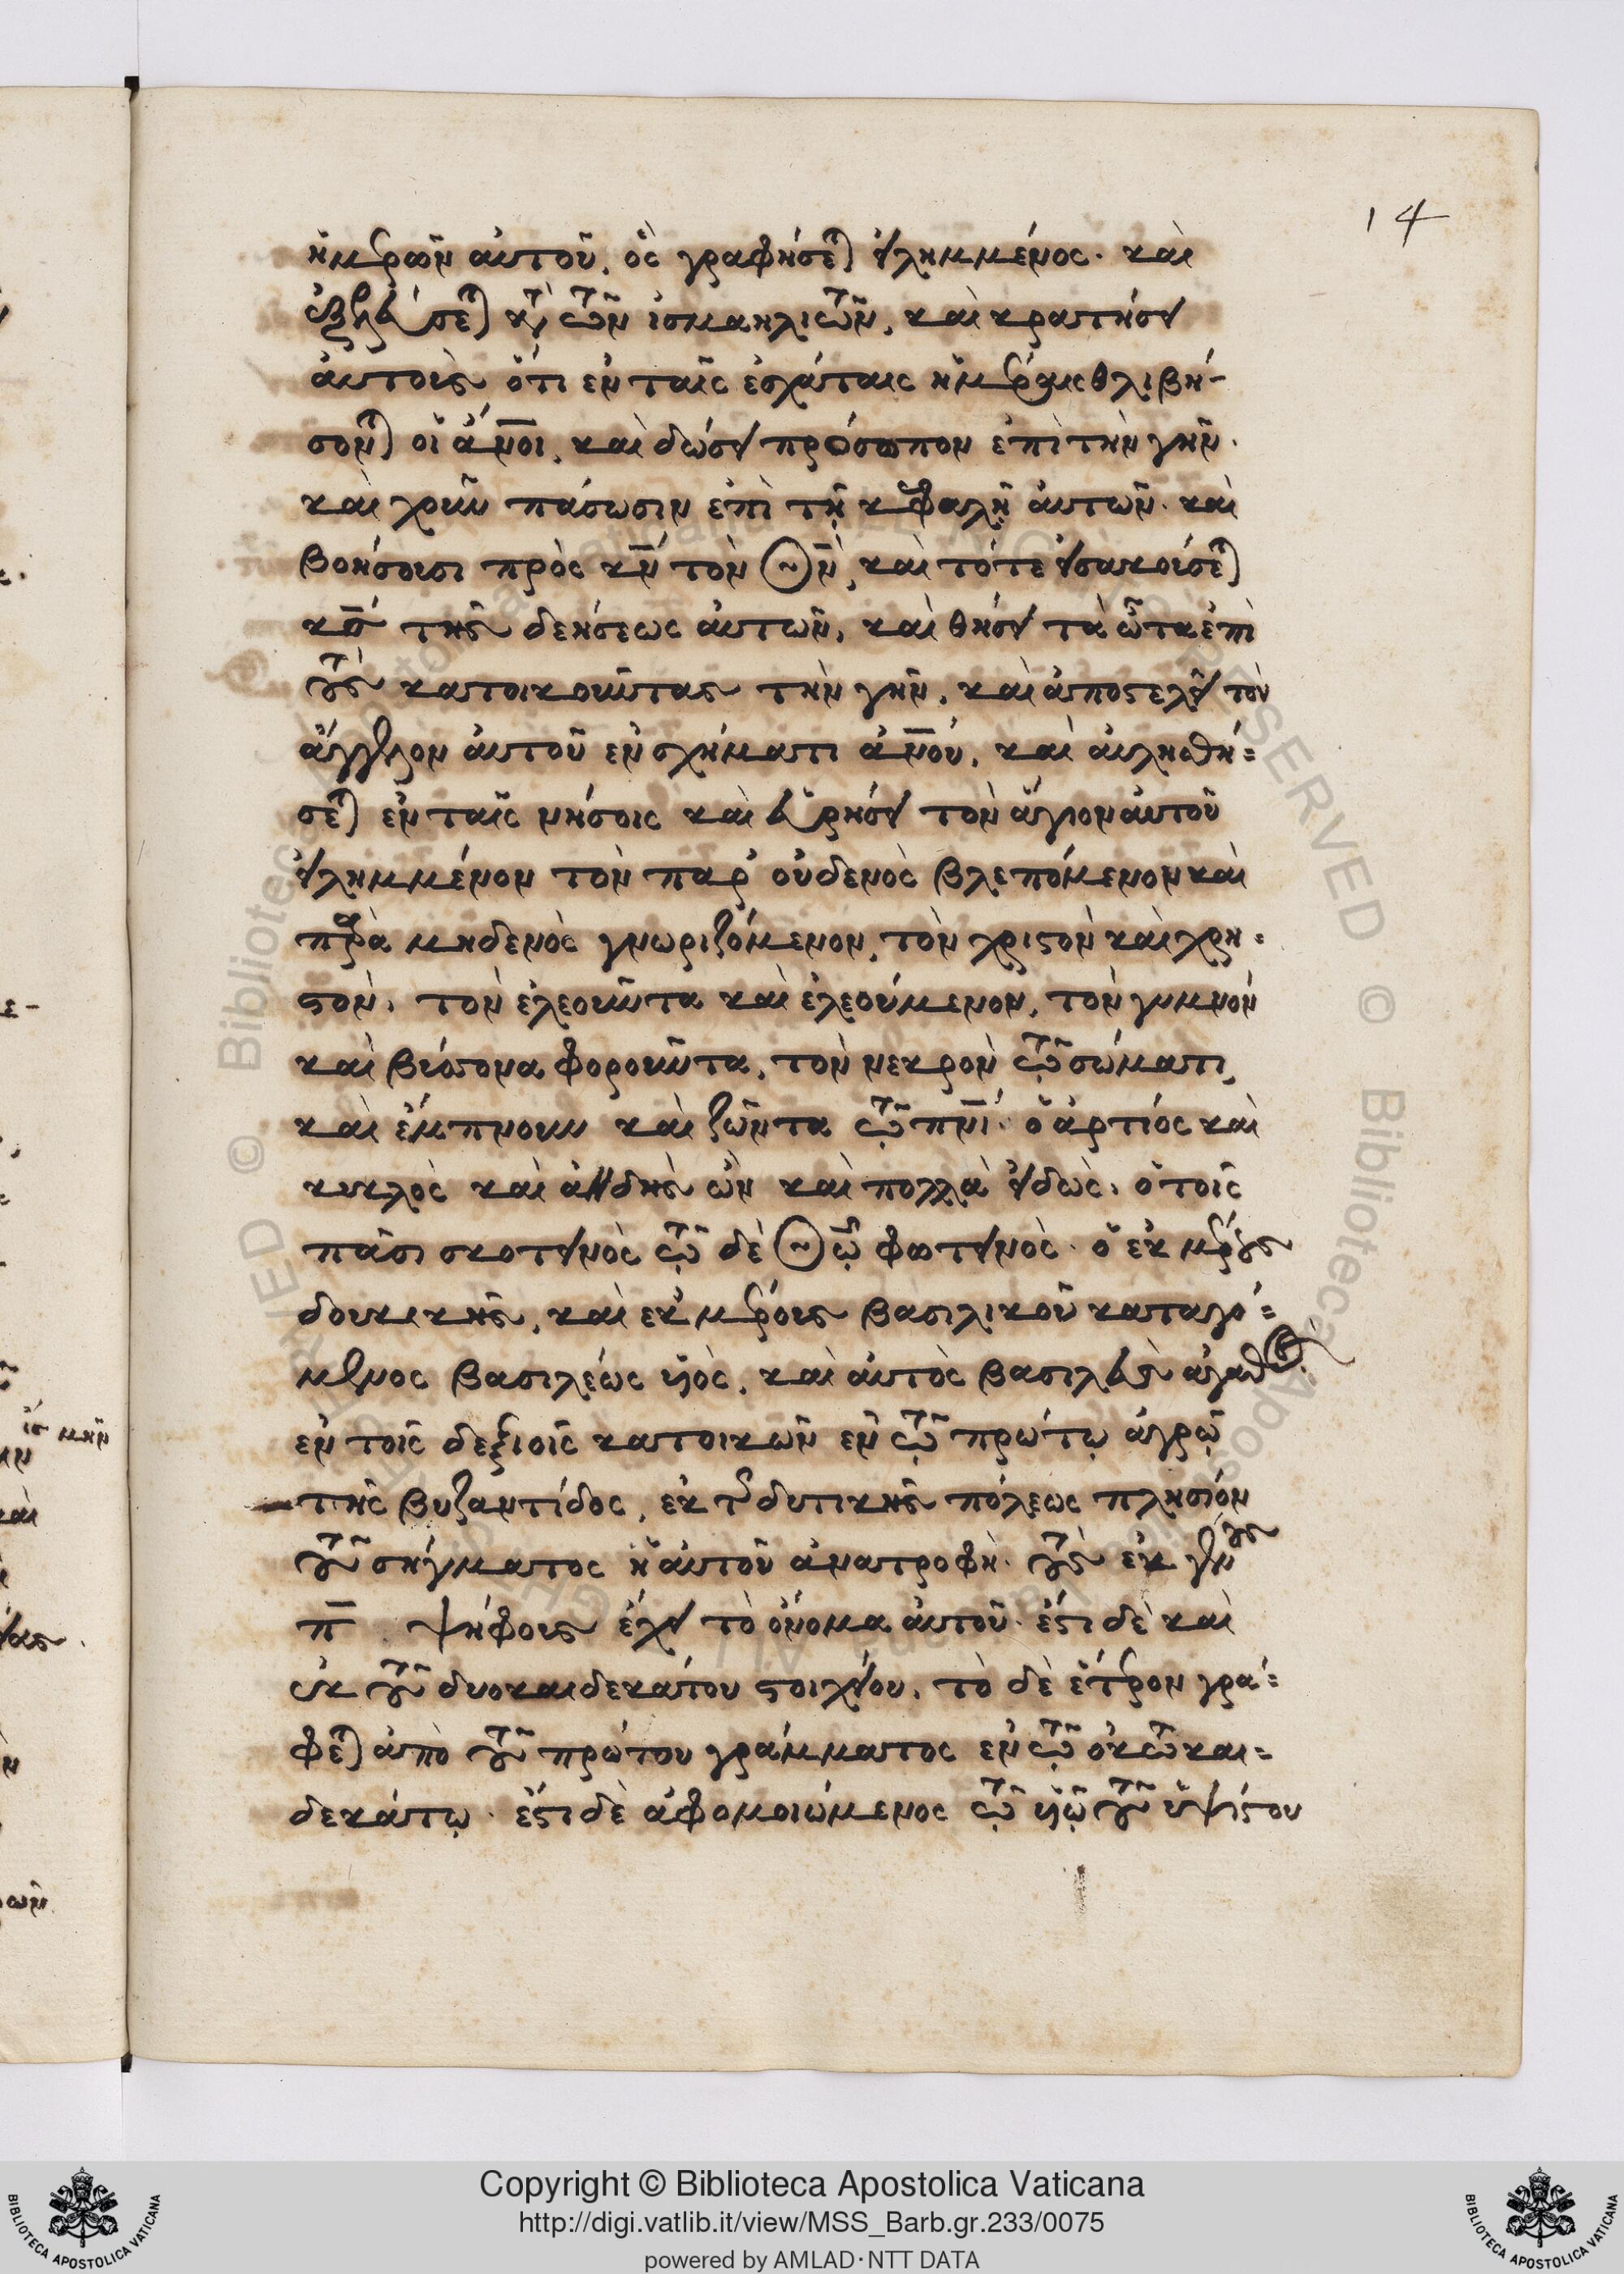 14
ἡμερῶν αὐτοῦ, ὃς γραφήσεται ἠλειμμένος. καὶ
ἐξελεύσεται κατὰ τῶν ἰσμαηλιτῶν, καὶ κρατήσει
αὐτοὺς ὅτι ἐν ταῖς ἐσχάταις ἡμέραις θλιβή-
σονται οἱ ἄνοι, καὶ δώσει πρόσωπον ἐπὶ τὴν γῆν.
καὶ χοῦν πάσωσιν ἐπὶ τῇ κεφαλῇ αὐτῶν. καὶ
βοήσουσι πρὸς κν τὸν Θν, καὶ τότε εἰσακούσεται
κς τῆς δεήσεως αὐτῶν, καὶ θήσει τὰ ὦτα ἐπὶ
τοὺς κατοικοῦντας τὴν γῆν, καὶ ἀποστελεῖ τὸν
ἄγγελον αὐτοῦ ἐν σχήματι ἀνού, καὶ αὐληθή-
σεται ἐν ταῖς νήσοις καὶ εὑρήσει τὸν ἅγιον αὐτοῦ
εἰλημμένον τὸν παρ' οὐδενὸς βλεπόμενον καὶ
παρὰ μηδενὸς γνωριζόμενον, τὸν χριστὸν καὶ χρη-
στόν, τὸν ἐλεοῦντα καὶ ἐλεούμενον, τὸν γυμνόν
καὶ βύσσονα φοροῦντα, τὸν νεκρὸν τῷ σώματι,
καὶ ἔμπνουν καὶ ζῶντα τῷ πνί. ὁ ἄρτιός καὶ
κυκλὸς καὶ ἀηδὴς ὢν καὶ πολλὰ εἰδώς, ὁ τοῖς
πᾶσι σκοτεινὸς τῷ δὲ Θῷ φωτεινός. ὁ ἐκ μέρους
δουκικῆς, καὶ ἐκ μέρους βασιλικοῦ καταγό-
μενος βασιλεώς υἱός, καὶ αὐτὸς βασιλεὺς ἀγαθός.
ἐν τοῖς δεξιοῖς κατοικῶν ἐν τῷ πρώτῳ ἀγρῷ
τῆς βυζαντίδος, ἐκ τῆς δυτικῆς πόλεως πλησίον
τοῦ σήγματος ἡ αὐτοῦ ἀνατροφή. τοὺς ἐκ γένους
π ψήφους ἔχει τὸ ὄνομα αὐτοῦ. ἔστι δὲ καὶ
ἐκ τοῦ δυοκαιδεκάτου στοιχείου, τὸ δὲ ἕτερον γρά-
φεται ἀπὸ τοῦ πρώτου γράμματος ἐν τῷ ὀκτωκαι-
δεκάτῳ. ἔστι δὲ ἀφομοιώμενος τῷ υἱῷ τοῦ ὑψίστου
Copyright © Biblioteca Apostolica Vaticana
http://digi.vatlib.it/view/MSS_Barb.gr.233/0075
powered by AMLAD·NTT DATA